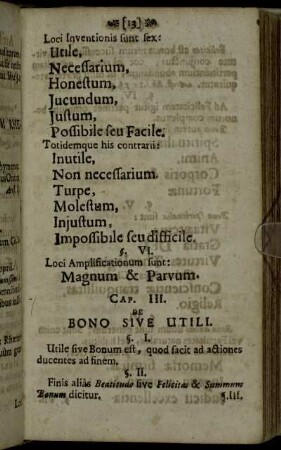 [13]
Loci Inventionis sunt sex:
Utile,
Necessarium,
Honestum,
Jucundum,
Justum,
Possibile seu Facile.
Totidemque his contrarii:
Inutile,
Non necessarium.
Turpe,
Molestum,
Injustum,
Impossibile seu difficile.
§. VI.
Loci Amplificationum sunt:
Magnum & Parvum.
CAP. III.
DE
BONO SIVE UTILI.
§. I.
Utile sive Bonum est, quod facit ad actiones
ducentes ad finem.
§. II.
Finis aliàs Beatitudo sive Felicitas & Summum
Bonum dicitur. §.III.